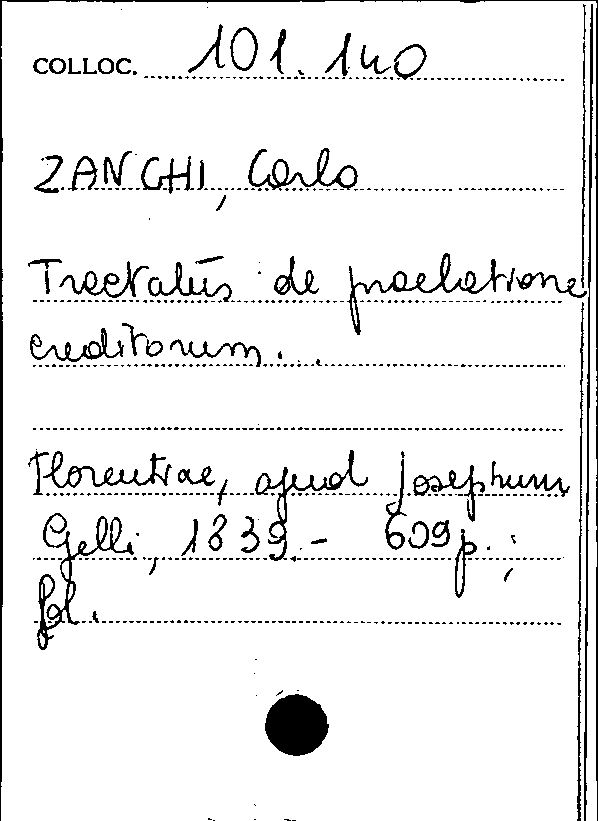 COLLOC. 101.140
ZANCHI, Carlo
Tractatus de praelatione
creditorum...
Florentiae, apud Josephum
Gelli, 1839.- 609 p. ;
fol.